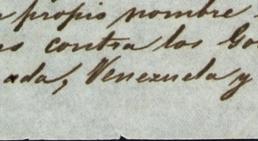 propio nombre
contra los Go
ada, Venezuela y